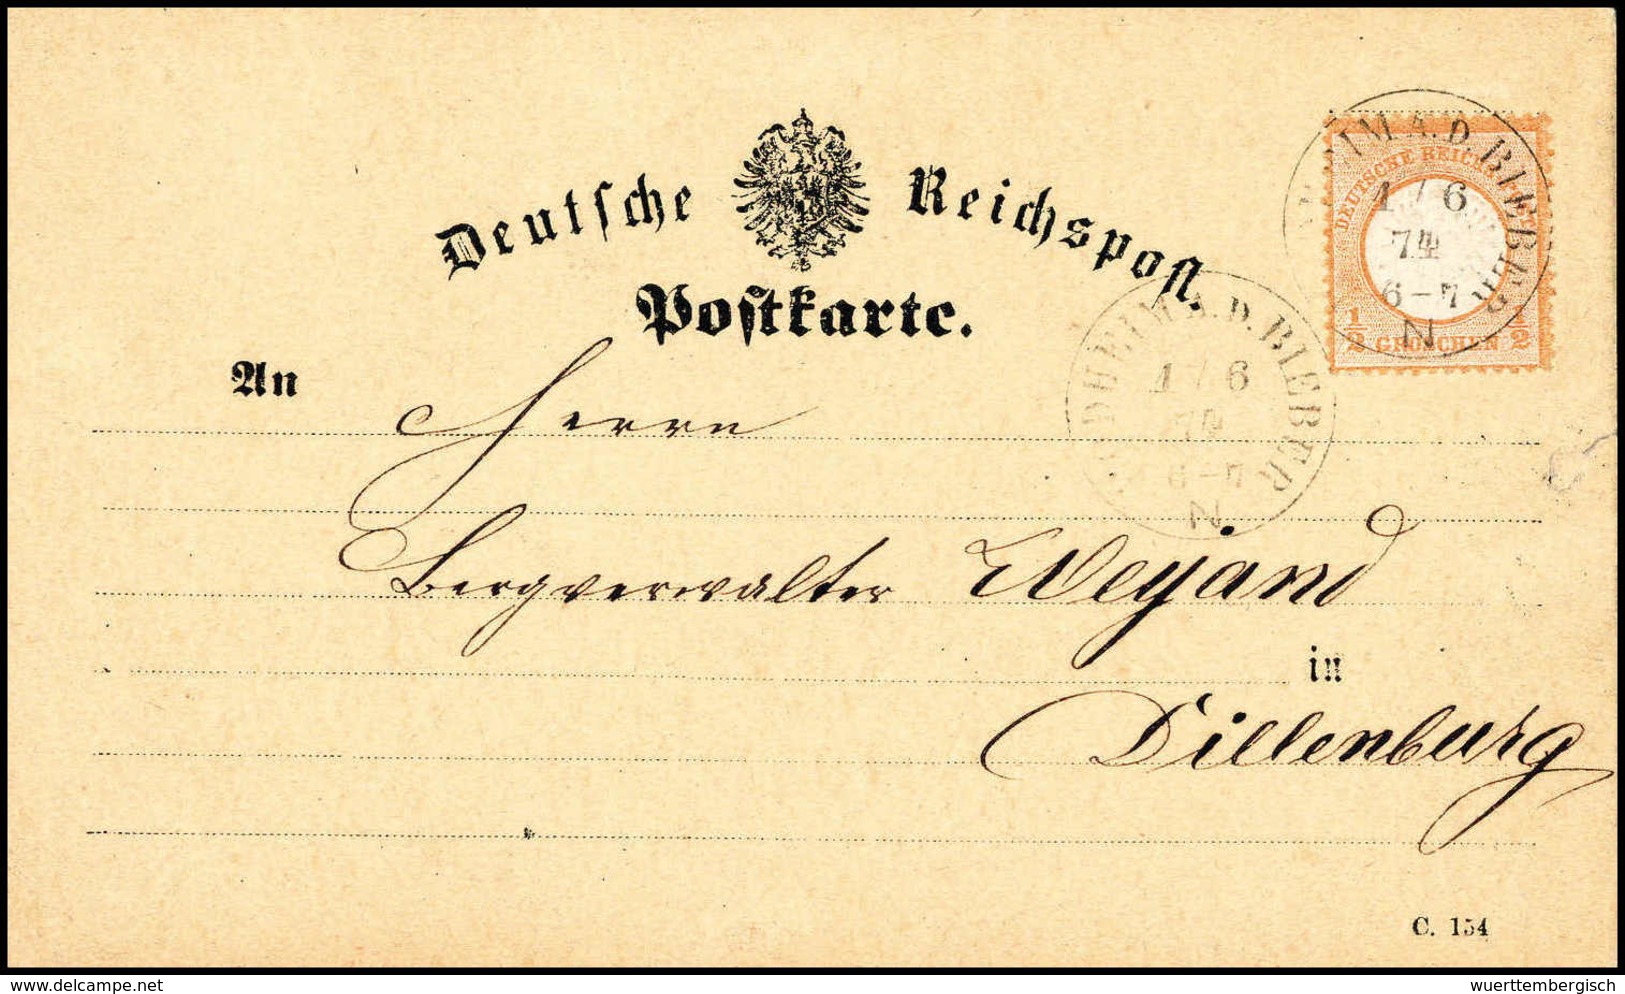 Deutsche Reichspost.
Postkarte.
An
Herrn
Bergverwalter Weyand
in
Dillenburg
C. 154
DEUTSCHE REICHS-POST
1/2 GROSCHEN 1/2
HEIM A.D. BIEBER
1 / 6
74
6-7
N
HEIM A.D. BIEBER
1 / 6
74
6-7
N
delcampe.net
wuerttembergisch